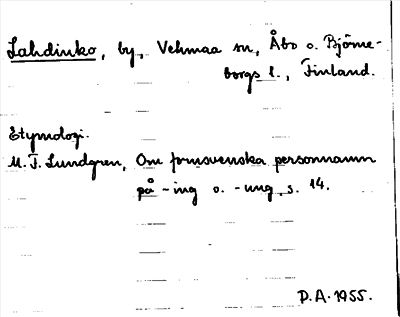 Lahdinko, by, Vehmaa sn, Åbo o. Björne-
borgs l., Finland.
Etymologi.
M. F. Lundgren, Om fornsvenska personnamn
på -ing o. -ung s. 14.
D.A. 1955.